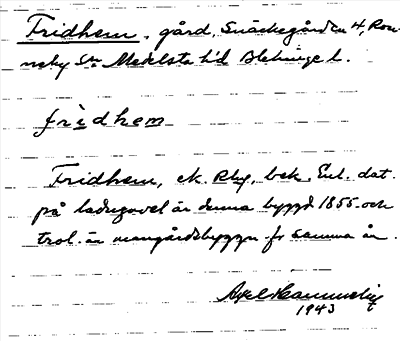 Fridhem, gård, Snäckegården 4, Ron-
neby Sn Medelsta h:d Blekinge l.
fridhem
Fridhem, ek. Rby, bek. Enl. dat.
på ladugavel är denna byggd 1855 och
trol. är mangårdsbyggn. fr samma år.
Axel
1943